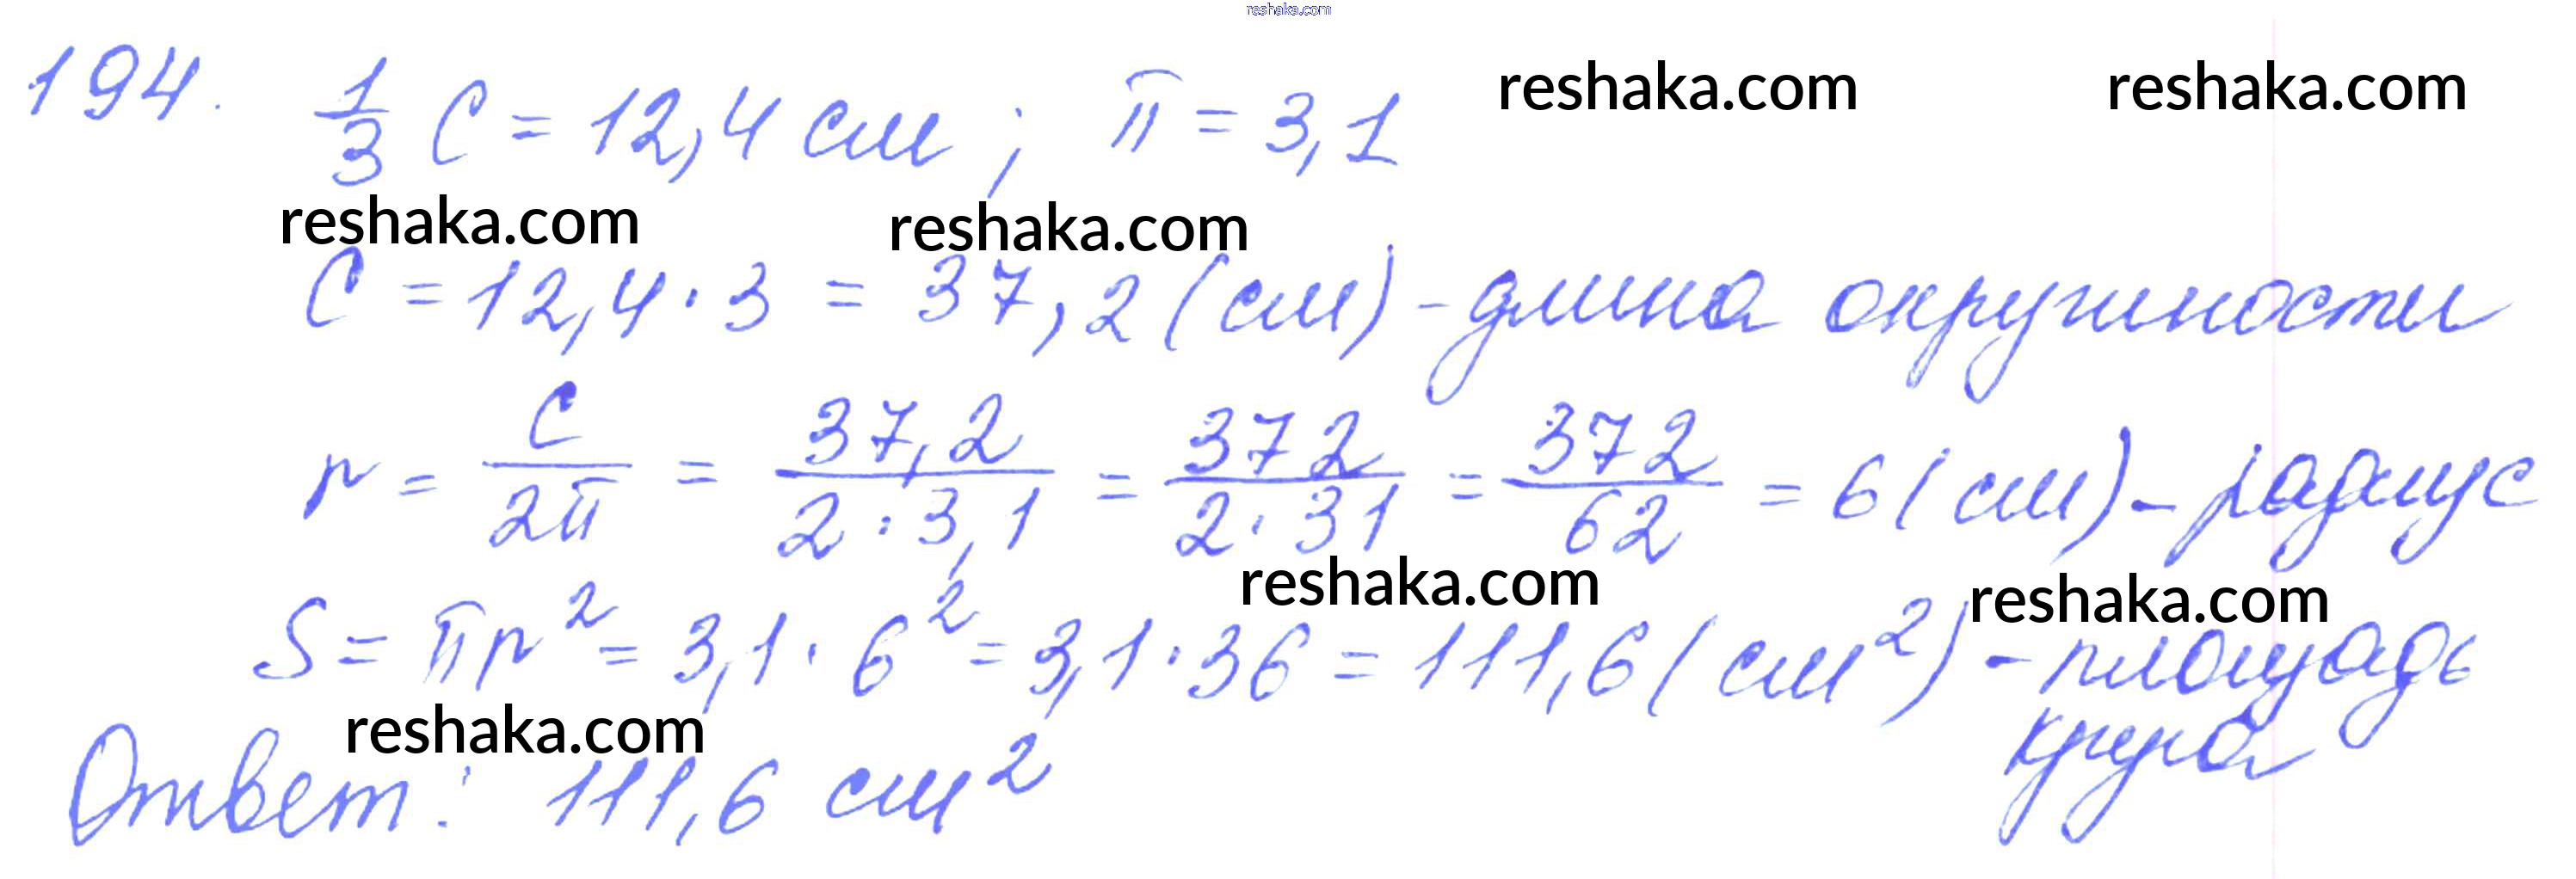 reshaka.com
194. 1/3 C = 12,4 см ; π = 3,1 reshaka.com reshaka.com
reshaka.com reshaka.com
C = 12,4 · 3 = 37,2 (см) - длина окружности
r = C/2π = 37,2/2·3,1 = 372/2·31 = 372/62 = 6 (см) - радиус
reshaka.com reshaka.com
S = πr² = 3,1 · 6² = 3,1 · 36 = 111,6 (см²) - площадь
круга
reshaka.com
Ответ: 111,6 см²